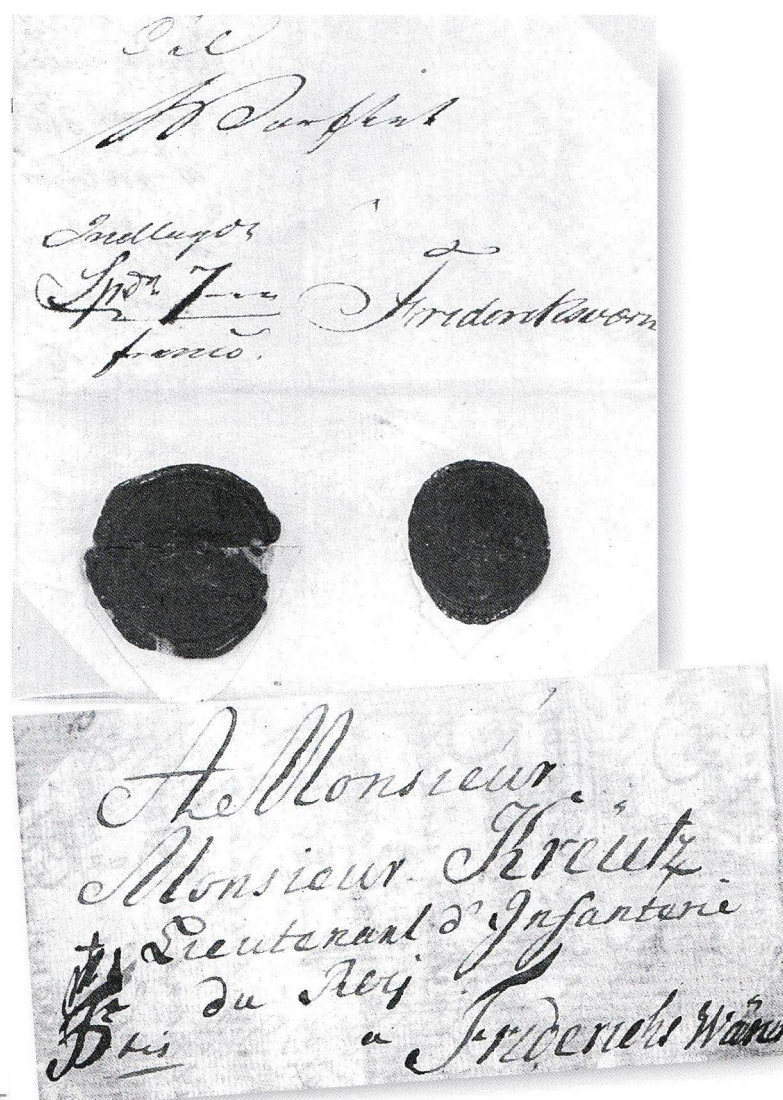 Til
Indlagdt
Spdr 7
franco.
Frideriksværn
A Monsieur
Monsieur Kreütz
Lieutenant d'Infanterie
du Roij
a Friderichs Wärn